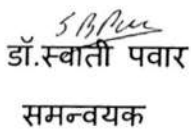 डॉ.स्वाती पवार
समन्वयक